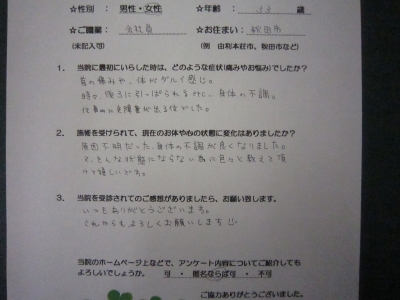 ☆性別 : 男性・女性 ☆年齢 : 33 歳
☆ご職業 : 会社員 ☆お住まい : 秋田市
(未記入可) (例 由利本荘市、秋田市など)
1. 当院に最初にいらした時は、どのような症状(痛みやお悩み)でしたか?
首の痛みや、体がダルイ感じ。
時々、後ろに引っぱられる様に、身体の不調。
仕事に支障が出る位でした。
2. 施術を受けられて、現在のお体や心の状態に変化はありましたか?
原因不明だった、身体の不調が良くなりました。
そんな状態にならない為に色々と教えて頂
けて嬉しいです。
3. 当院を受診されてのご感想がありましたら、お願い致します。
いつもありがとうございます。
これからもよろしくお願いします
当院のホームページ上などで、アンケート内容についてご紹介しても
よろしいでしょうか。 可 ・ 匿名ならば可 ・ 不可
ご協力ありがとうございました。